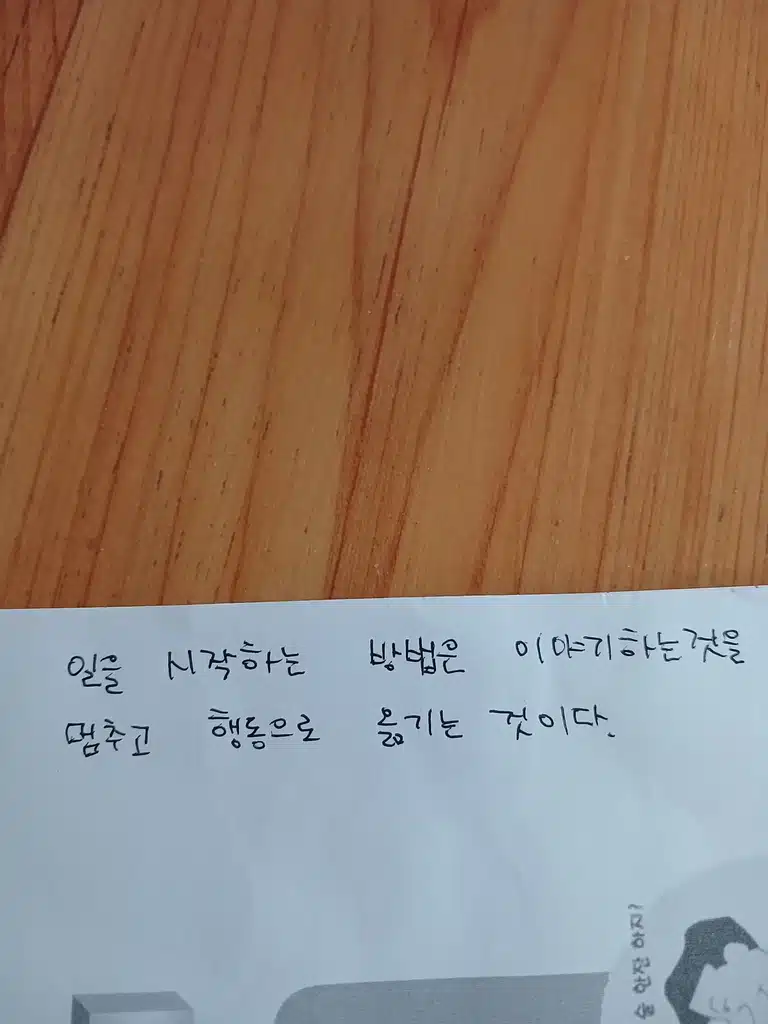 일을 시작하는 방법은 이야기하는것을
멈추고 행동으로 옮기는 것이다.
술 한잔 하지?